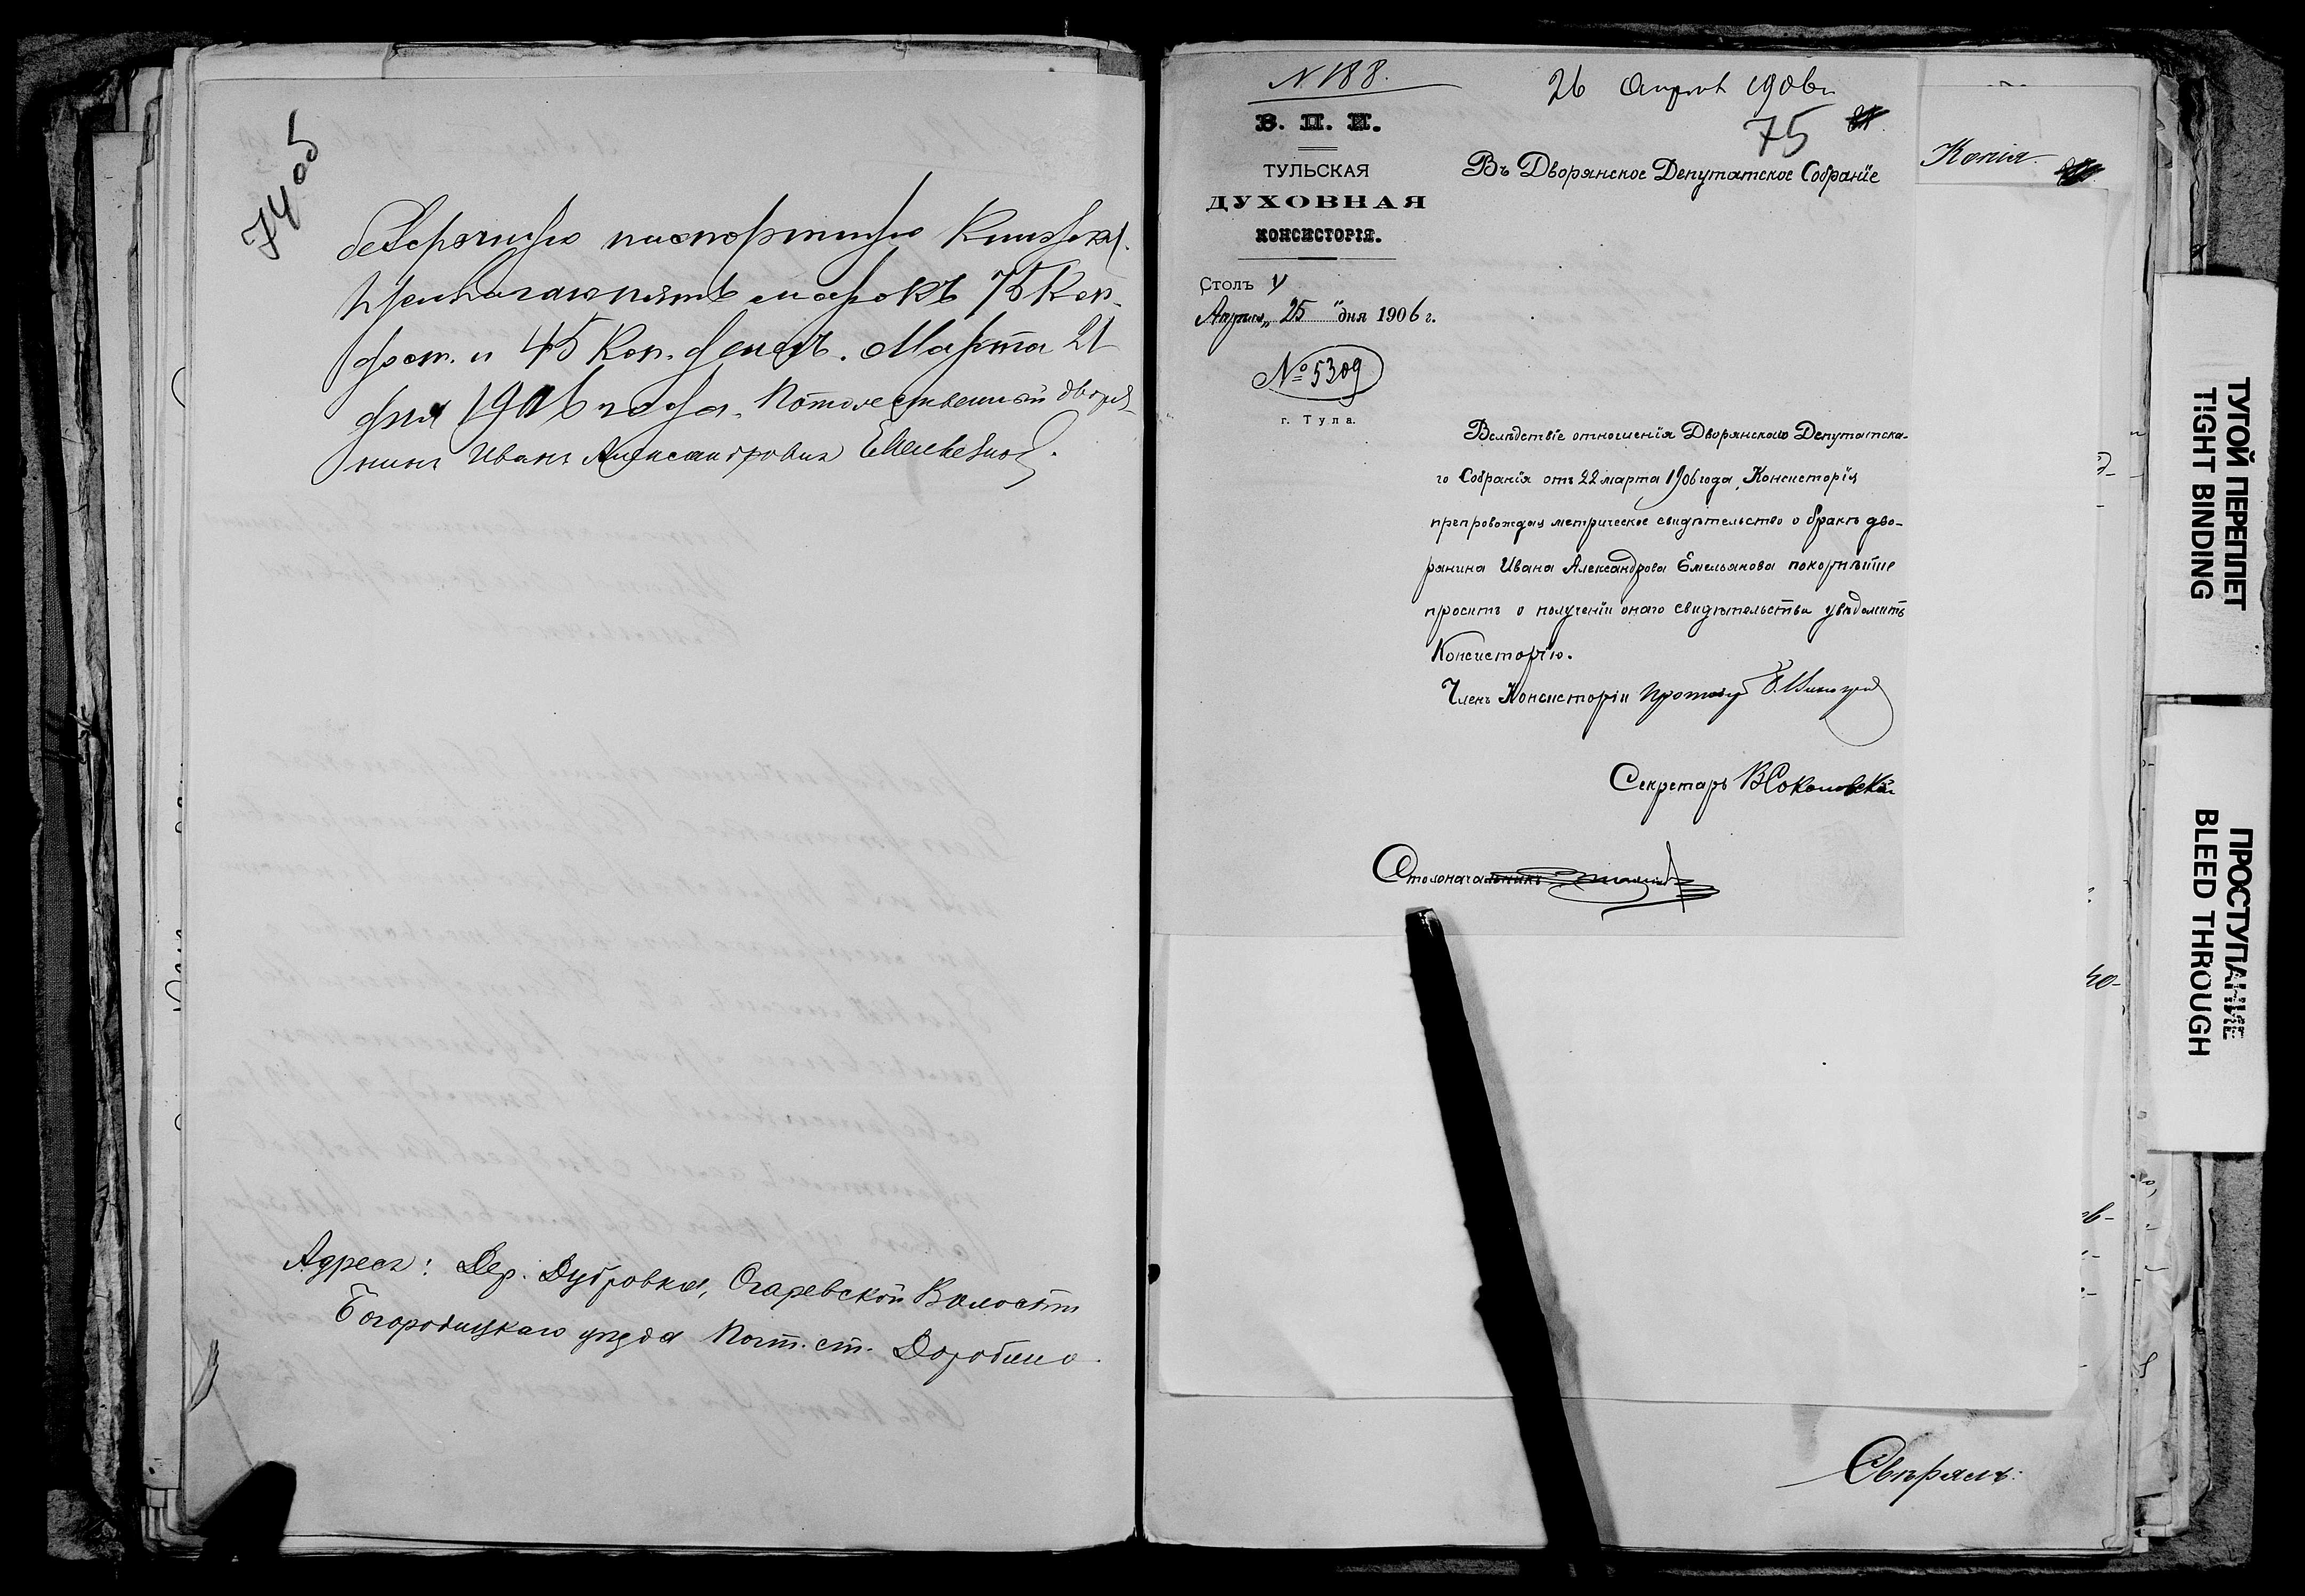 74 об
безсрочную паспортную книжку.
Прилагаю пять марокъ 75 коп.
дост. и 45 коп. денегъ. Марта 21
дня 1906 года. Потомственный дворя-
нинъ Иванъ Александровичъ Емельяновъ.
Адресъ: Дер. Дубровка, Огаревской Волости
Богородицкаго уѣзда Почт. ст. Доробино.
N 188.
26 Апрѣля 1906 г.
75
В. П. И.
ТУЛЬСКАЯ
ДУХОВНАЯ
КОНСИСТОРІЯ.
Столъ V
Апрѣля „25" дня 1906 г.
№ 5309
г. Тула.
Въ Дворянское Депутатское Собраніе
Вслѣдствіе отношенія Дворянскаго Депутатска-
го Собранія отъ 22 марта 1906 года, Консисторія
препровождая метрическое свидѣтельство о бракѣ дво-
рянина Ивана Александрова Емельянова покорнѣйше
проситъ о полученіи онаго свидѣтельства увѣдомить
Консисторію.
Членъ Консисторіи
Секретарь В Соколовскій
Столоначальникъ
Копія.
Свѣрялъ:
ТУГОЙ ПЕРЕПЛЕТ
TIGHT BINDING
ПРОСТУПАНИЕ
BLEED THROUGH